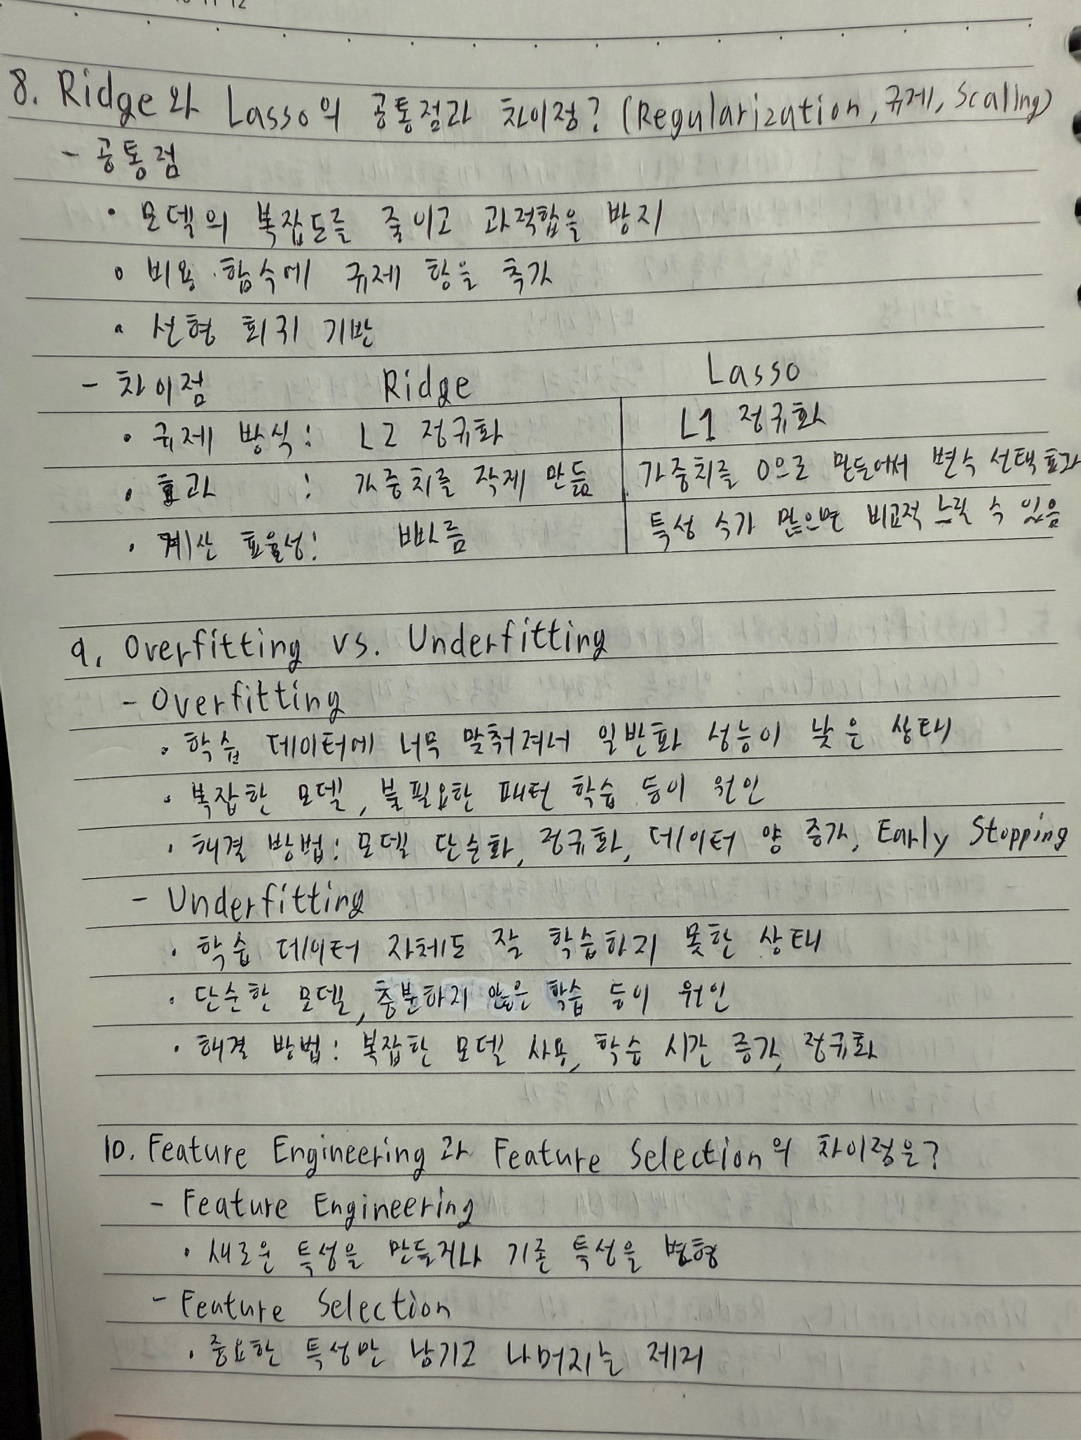 8. Ridge와 Lasso의 공통점과 차이점? (Regularization, 규제, Scaling)
- 공통점
• 모델의 복잡도를 줄이고 과적합을 방지
• 비용 함수에 규제 항을 추가
• 선형 회귀 기반
- 차이점 Ridge Lasso
• 규제 방식: L2 정규화 L1 정규화
• 효과 : 가중치를 작게 만듦 가중치를 0으로 만들어서 변수 선택 효과
• 계산 효율성: 빠름 특성 수가 많으면 비교적 느릴 수 있음
9. Overfitting vs. Underfitting
- Overfitting
• 학습 데이터에 너무 맞춰져서 일반화 성능이 낮은 상태
• 복잡한 모델, 불필요한 패턴 학습 등이 원인
• 해결 방법: 모델 단순화, 정규화, 데이터 양 증가, Early Stopping
- Underfitting
• 학습 데이터 자체도 잘 학습하지 못한 상태
• 단순한 모델, 충분하지 않은 학습 등이 원인
• 해결 방법: 복잡한 모델 사용, 학습 시간 증가, 정규화
10. Feature Engineering과 Feature Selection의 차이점은?
- Feature Engineering
• 새로운 특성을 만들거나 기존 특성을 변형
- Feature Selection
• 중요한 특성만 남기고 나머지는 제거